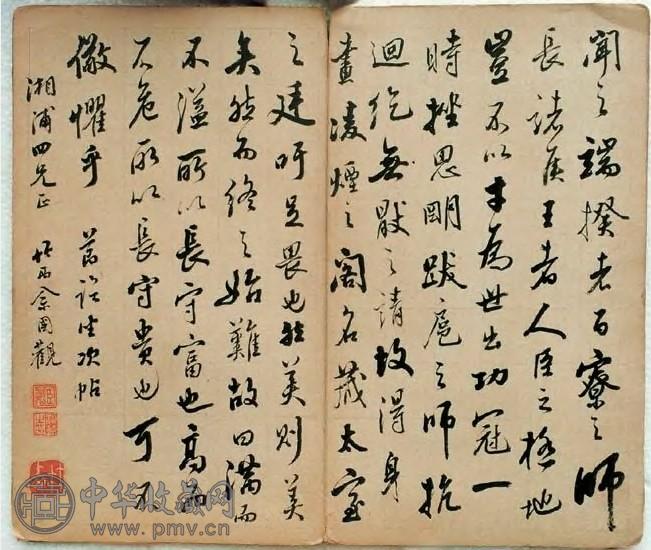 聞之端揆者百寮之師
長諸侯王者人臣之極地
豈不以才為世出功冠一
時挫思明跋扈之師抗
迴紇無厭之請故得身
畫凌煙之閣名藏太室
之廷吁足畏也然美則美
矣然而終之始難故曰滿而
不溢所以長守富也高而
不危所以長守貴也可不
儆懼乎 節 坐次帖
湘浦四兄正 西余國觀
中华收藏网
www.pmv.cn